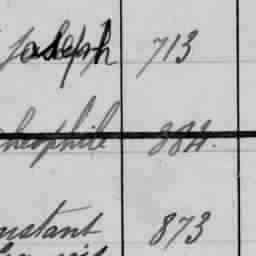 Joseph 713
Theophile 884.
nstant 873